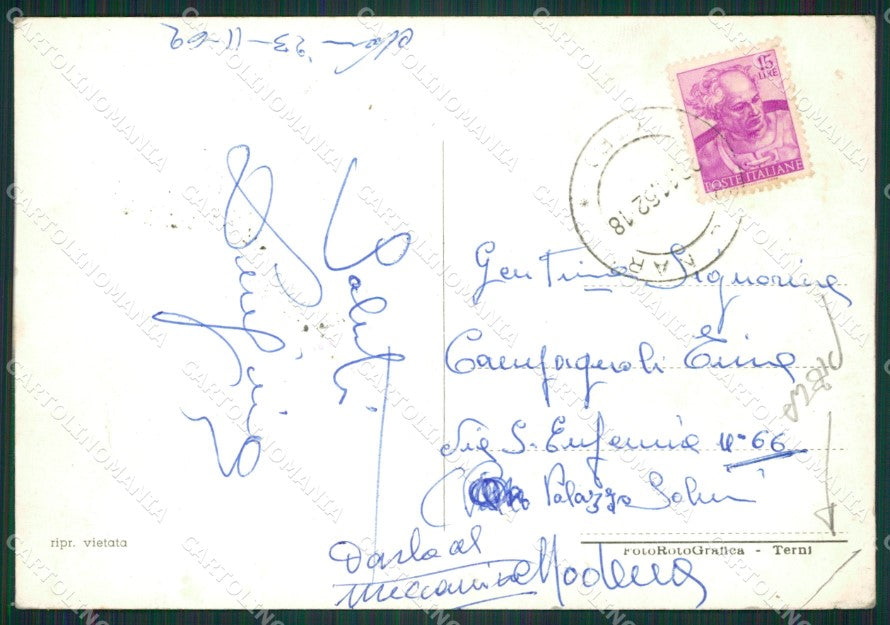 23-11-62
Saluti
15
LIRE
POSTE ITALIANE
NAR
62.18
Gent.ma Signorina
Campagnoli Enina
Via S. Eufemia n° 66
Palazzo Solmi
Modena
Darla al
meccanico
ripr. vietata
FotoRotoGrafica - Terni
CARTOLINOMANIA